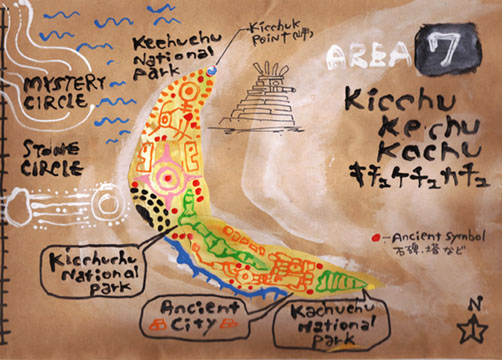 Keehuehu
National
Park
Kicchuk
Point(岬)
AREA 7
MYSTERY
CIRCLE
STONE
CIRCLE
Kicchu
Kechu
Kachu
キチュケチュカチュ
Ancient Symbol
石碑、塔など
Kicchuchu
National
Park
Ancient
City
Kachuehu
National
Park
N